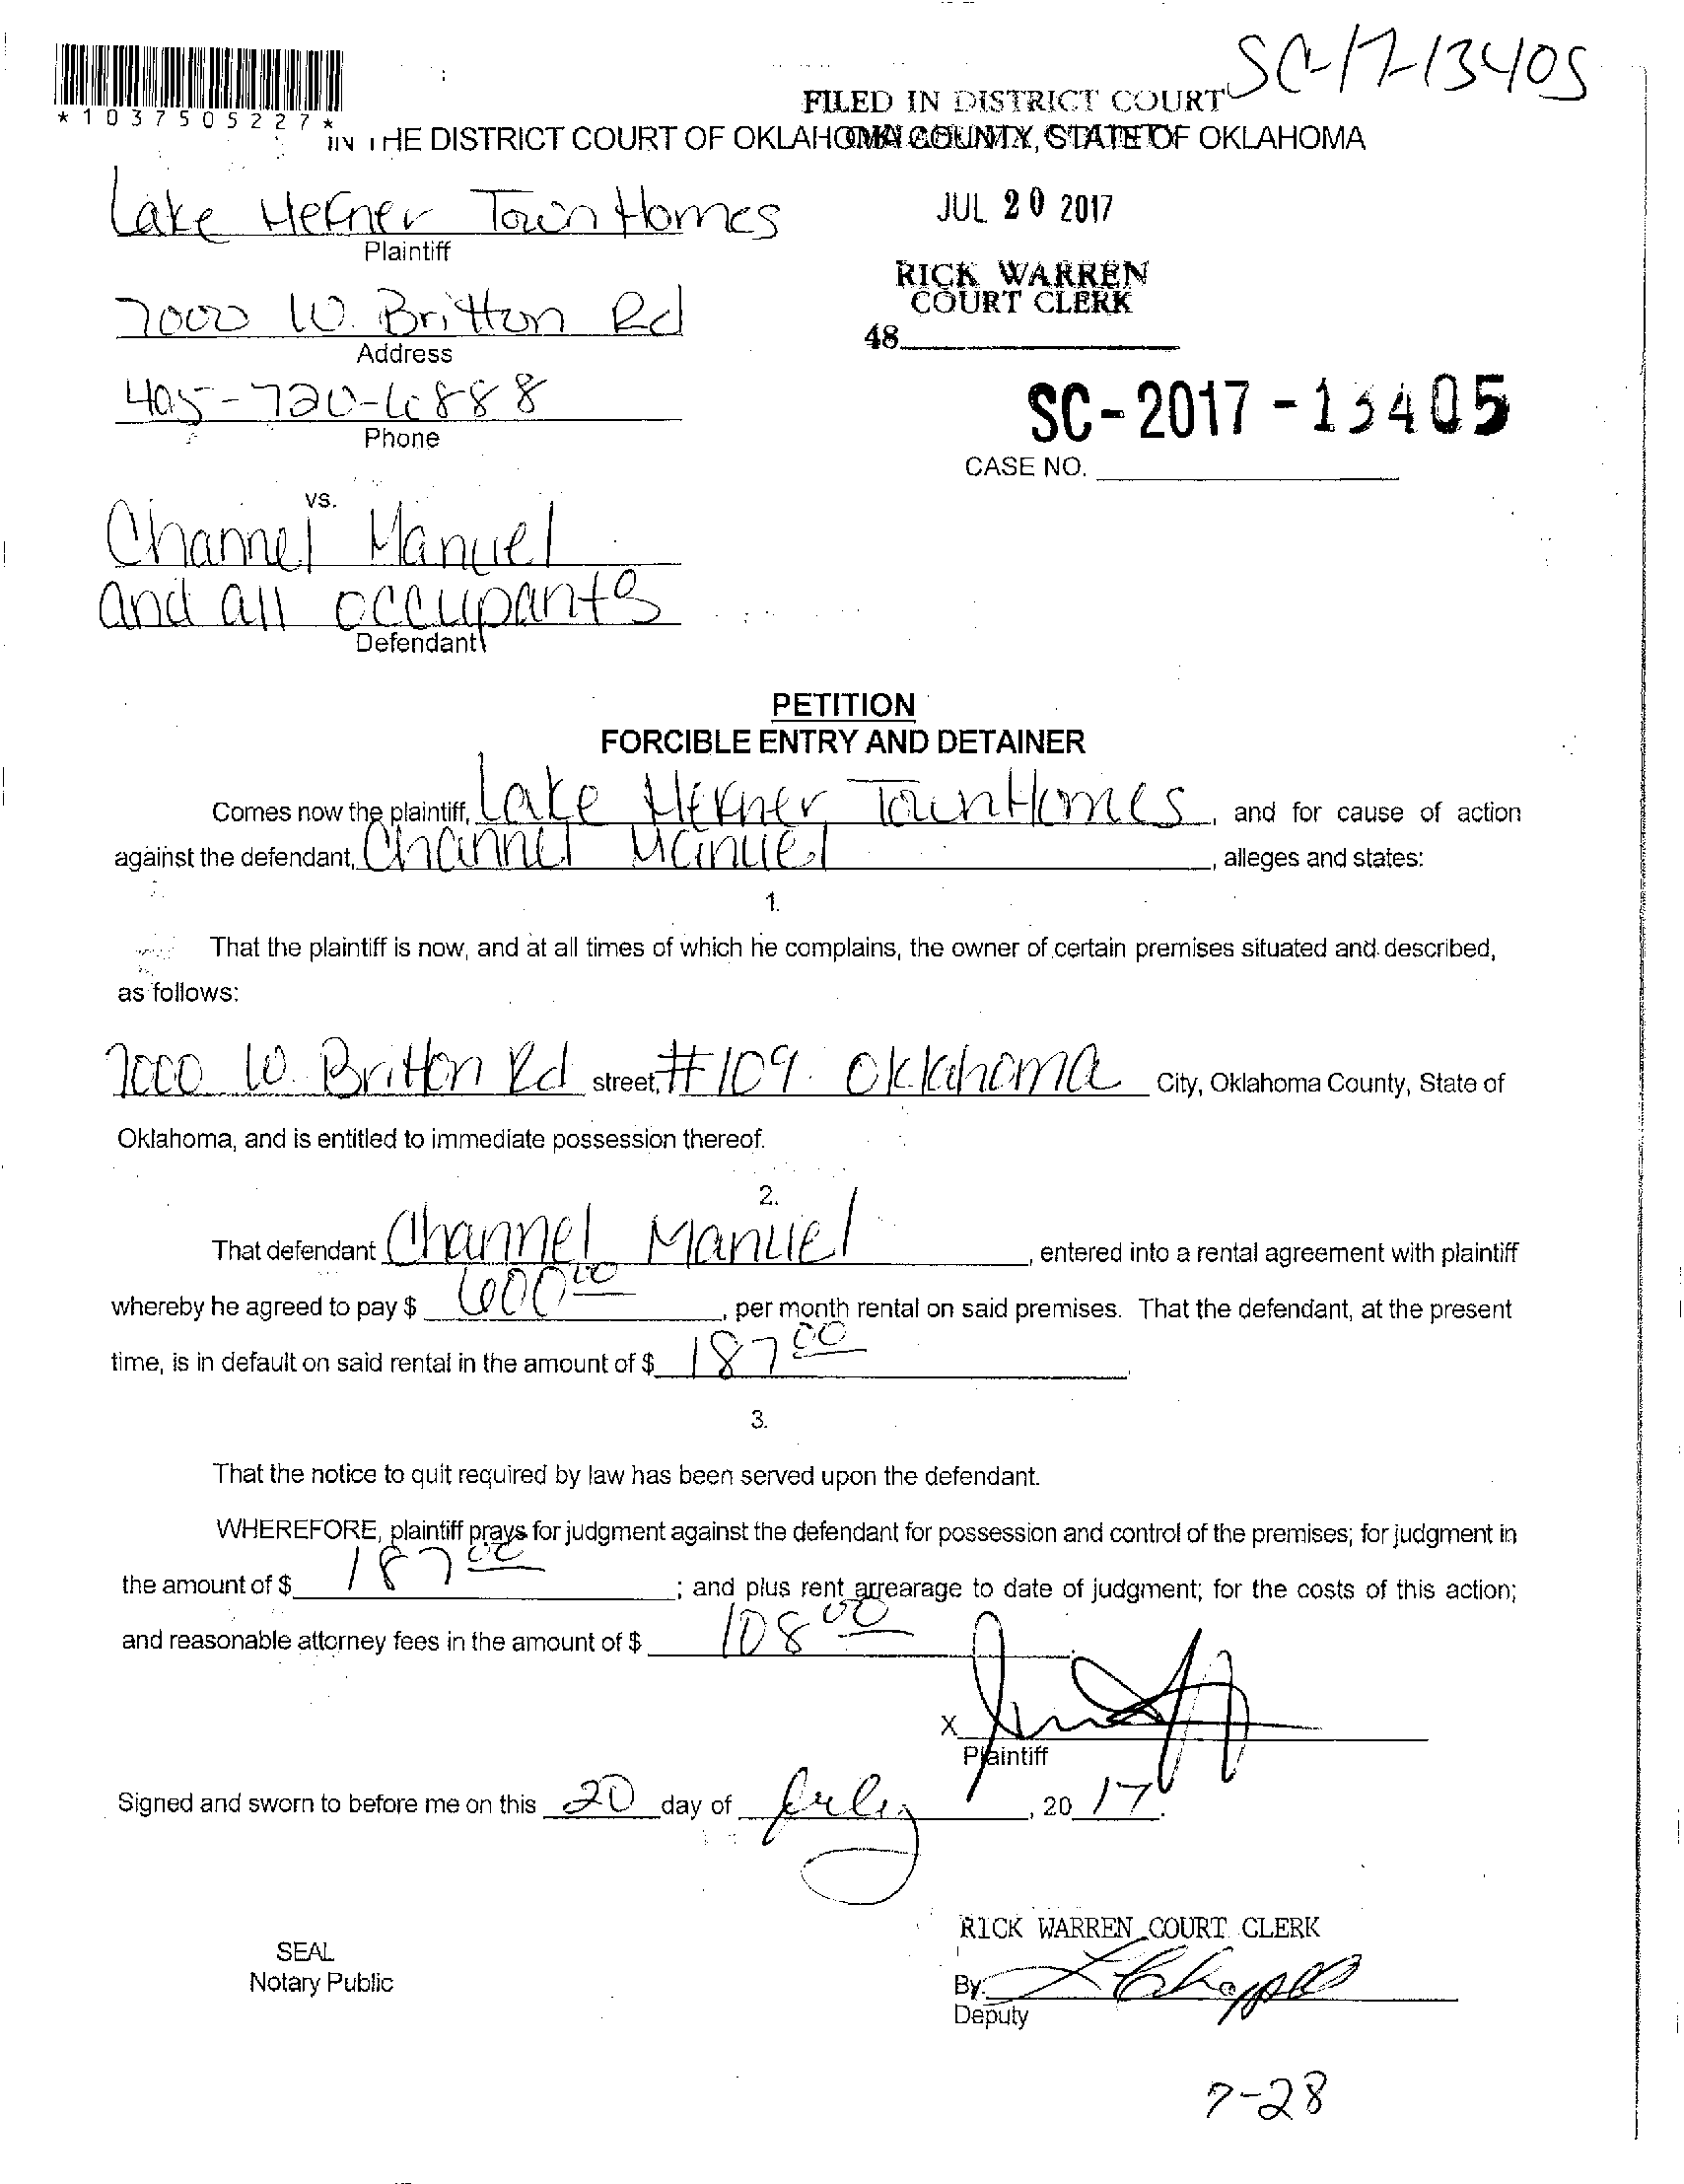 SC-17-13405
*1037505227*
FILED IN DISTRICT COURT
IN THE DISTRICT COURT OF OKLAHOMA COUNTY, STATE OF OKLAHOMA
Lake Hefner Town Homes
Plaintiff
JUL 20 2017
RICK WARREN
COURT CLERK
48
7000 W. Britton Rd
Address
405-720-6888
Phone
SC-2017-13405
CASE NO.
vs.
Channel Manuel
and all occupants
Defendant
PETITION
FORCIBLE ENTRY AND DETAINER
Comes now the plaintiff, Lake Hefner TownHomes, and for cause of action
against the defendant, Channel Manuel, alleges and states:
1.
That the plaintiff is now, and at all times of which he complains, the owner of certain premises situated and described,
as follows:
7000 W. Britton Rd street, #109. Oklahoma City, Oklahoma County, State of
Oklahoma, and is entitled to immediate possession thereof.
2.
That defendant Channel Manuel, entered into a rental agreement with plaintiff
whereby he agreed to pay $ 600 00, per month rental on said premises. That the defendant, at the present
time, is in default on said rental in the amount of $ 187 00.
3.
That the notice to quit required by law has been served upon the defendant.
WHEREFORE, plaintiff prays for judgment against the defendant for possession and control of the premises; for judgment in
the amount of $ 187 00; and plus rent arrearage to date of judgment; for the costs of this action;
and reasonable attorney fees in the amount of $ 108 00
X
Plaintiff
Signed and sworn to before me on this 20 day of July, 20 17.
RICK WARREN COURT CLERK
SEAL
Notary Public
By:
Deputy
7-28